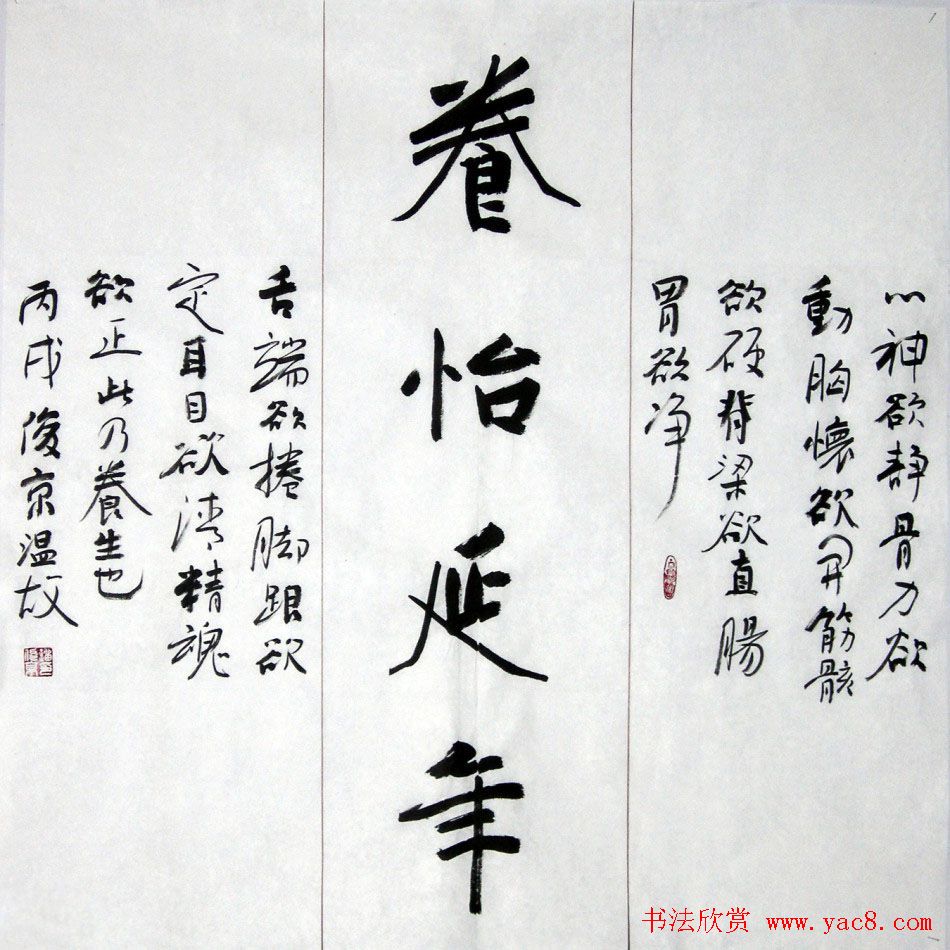 養怡延年
心神欲静骨力欲
動胸懷欲開筋骸
欲硬脊梁欲直腸
胃欲净
舌端欲捲脚跟欲
定耳目欲清精魂
欲正此乃養生也
丙戌俊京温故
书法欣赏 www.yac8.com